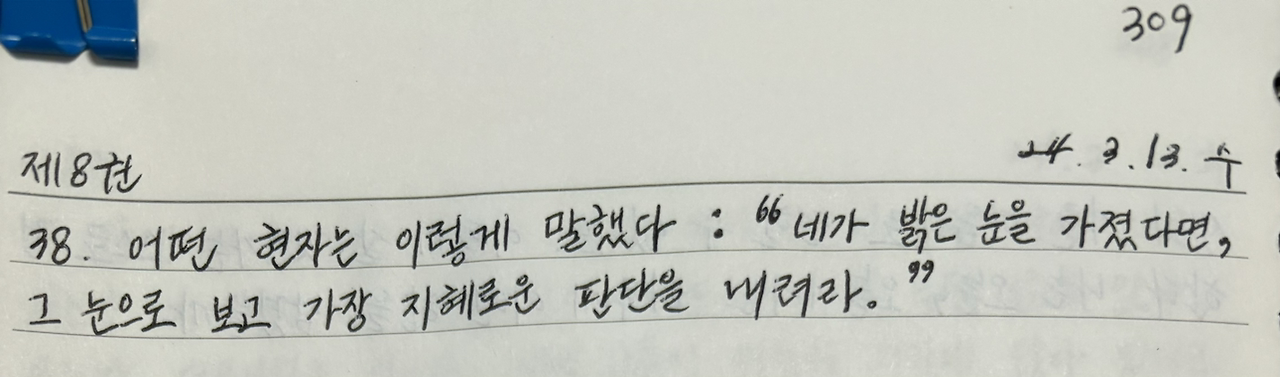 309
제8권
24. 3. 13. 수
38. 어떤 현자는 이렇게 말했다 : “네가 밝은 눈을 가졌다면,
그 눈으로 보고 가장 지혜로운 판단을 내려라.”